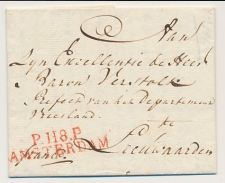 Aan
Zyn Excellentie de Heer
Baron Verstolk
Prefect van het Departement
Vriesland.
te
Leeuwarden
P.118.P.
AMSTERDAM
franco